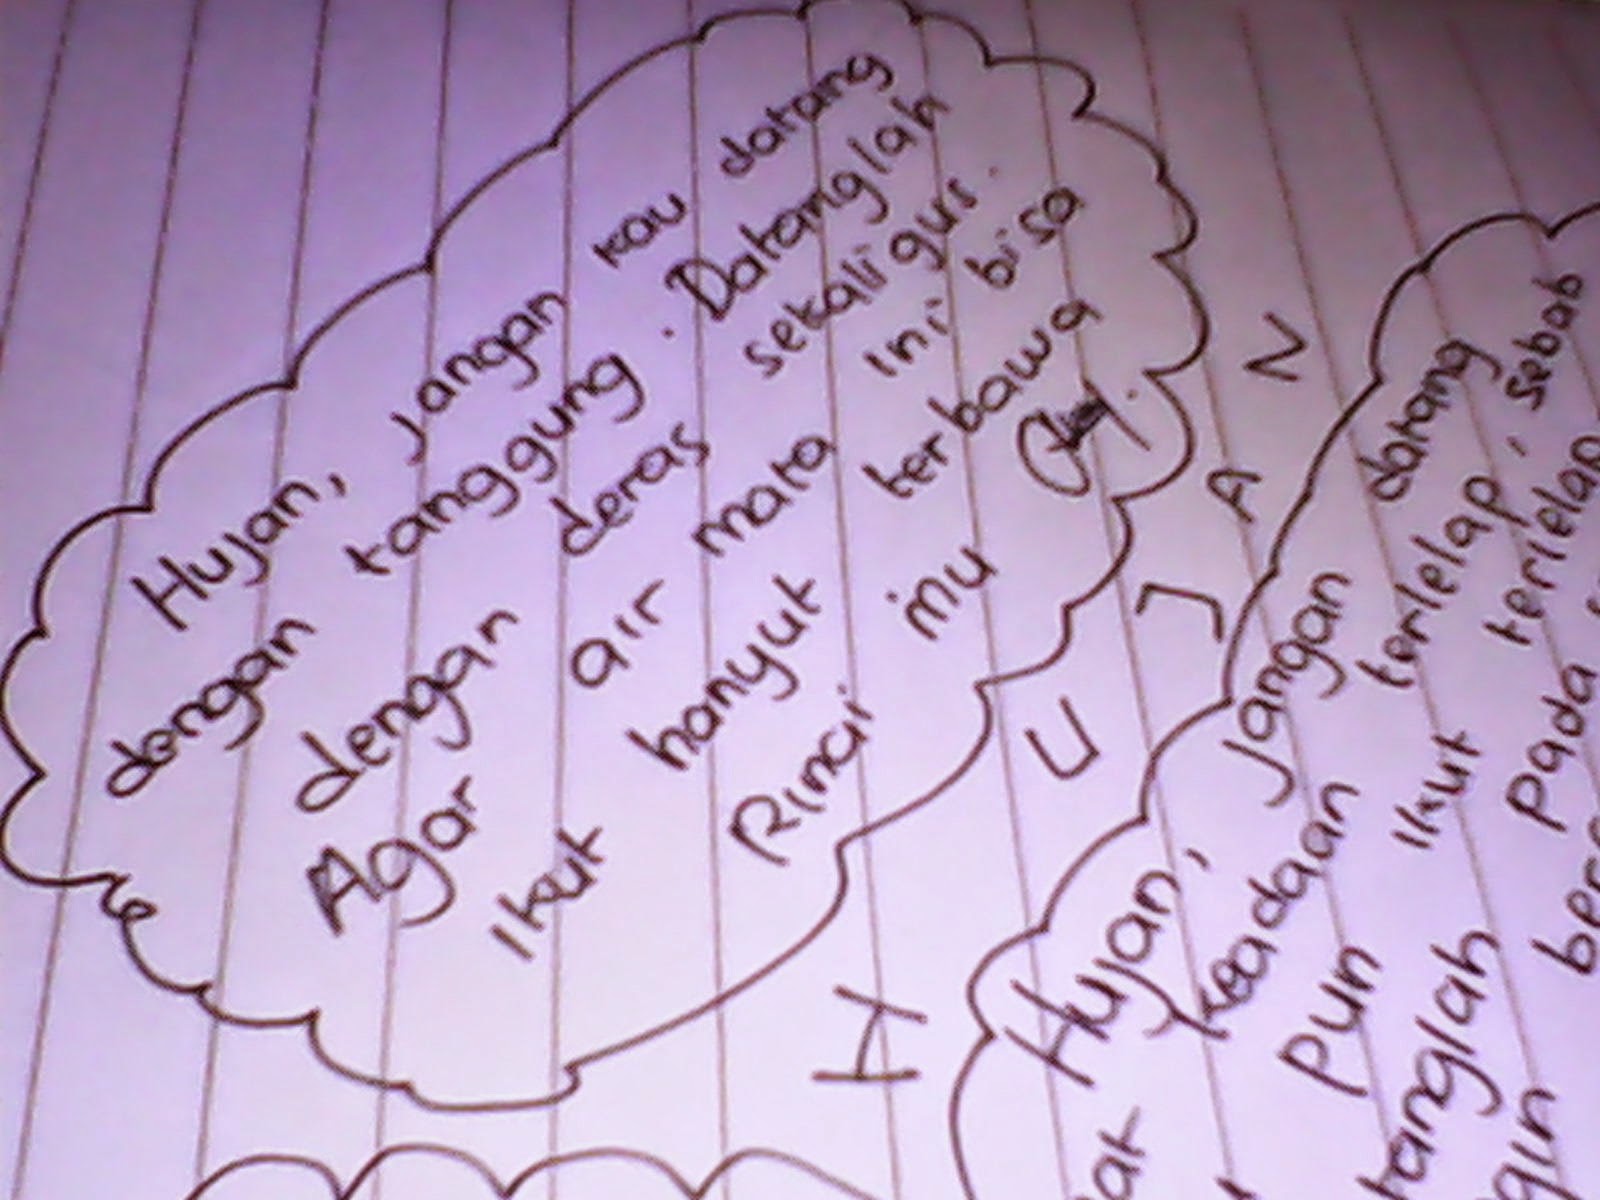 Hujan, jangan kau datang
dengan tanggung. Datanglah
dengan deras sekali gus.
Agar air mata ini bisa
Ikut hanyut terbawa
Rinai mu
HUJAN
Hujan, jangan datang
keadaan terlelap, sebab
pun Ikut terlelap
pada